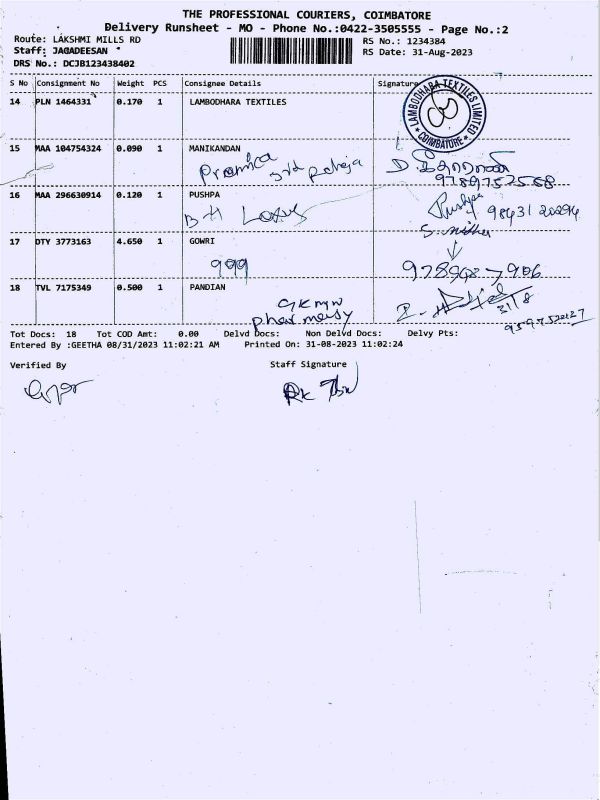 THE PROFESSIONAL COURIERS, COIMBATORE
Delivery Runsheet - MO - Phone No.:0422-3505555 - Page No.:2
Route: LAKSHMI MILLS RD
RS No.: 1234384
Staff: JAGADEESAN
RS Date: 31-Aug-2023
DRS No.: DCJB123438402
S No Consignment No Weight PCS Consignee Details Signature
14 PLN 1464331 0.170 1 LAMBODHARA TEXTILES
LAMBODHARA TEXTILES LIMITED * COIMBATORE *
15 MAA 104754324 0.090 1 MANIKANDAN
3rd
9789752568
16 MAA 296630914 0.120 1 PUSHPA
Pushpa 98431 20294
17 DTY 3773163 4.650 1 GOWRI
999
18 TVL 7175349 0.500 1 PANDIAN
31/8
pharmacy
Tot Docs: 18 Tot COD Amt: 0.00 Delvd Docs: Non Delvd Docs: Delvy Pts:
Entered By :GEETHA 08/31/2023 11:02:21 AM Printed On: 31-08-2023 11:02:24
Verified By Staff Signature